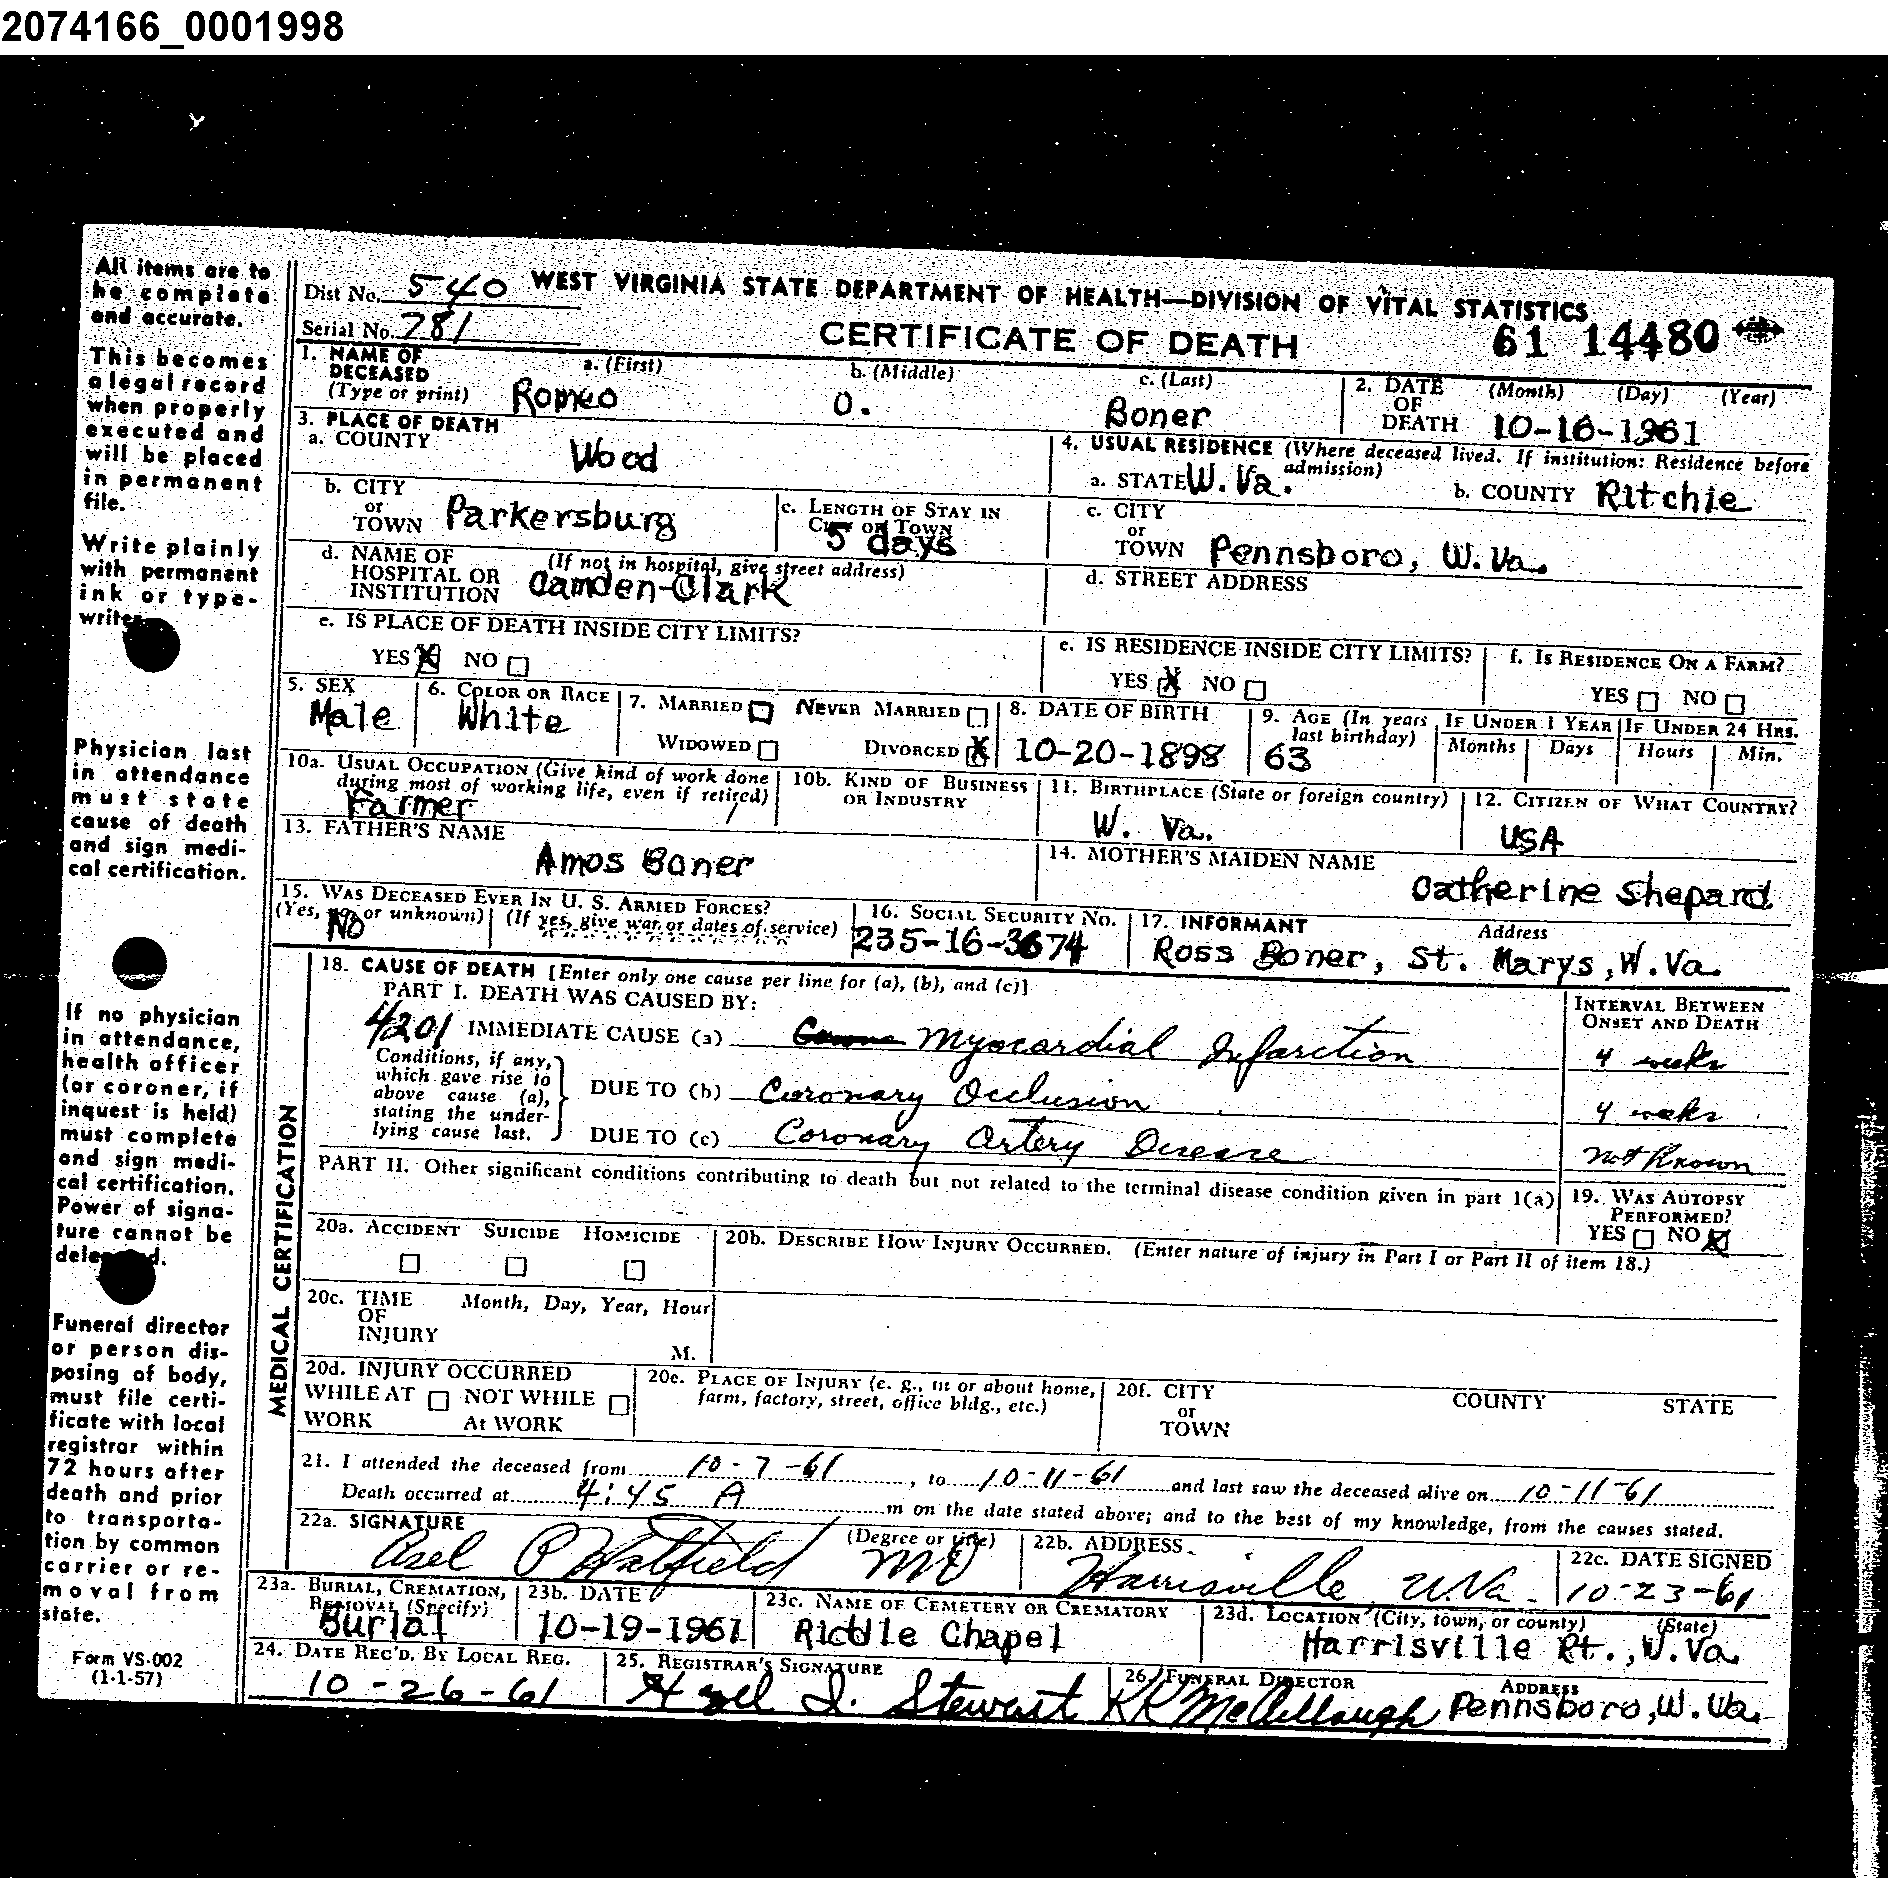 2074166_0001998
All items are to
be complete
and accurate.
This becomes
a legal record
when properly
executed and
will be placed
in permanent
file.
Write plainly
with permanent
ink or type-
writer.
Physician last
in attendance
must state
cause of death
and sign medi-
cal certification.
If no physician
in attendance,
health officer
(or coroner, if
inquest is held)
must complete
and sign medi-
cal certification.
Power of signa-
ture cannot be
delegated.
Funeral director
or person dis-
posing of body,
must file certi-
ficate with local
registrar within
72 hours after
death and prior
to transporta-
tion by common
carrier or re-
moval from
state.
Form VS-002
(1-1-57)
Dist No. 540 WEST VIRGINIA STATE DEPARTMENT OF HEALTH—DIVISION OF VITAL STATISTICS
Serial No. 781 CERTIFICATE OF DEATH 61 14480
1. NAME OF DECEASED (Type or print) a. (First) Romeo b. (Middle) O. c. (Last) Boner
2. DATE OF DEATH (Month) (Day) (Year) 10-16-1961
3. PLACE OF DEATH
a. COUNTY Wood
4. USUAL RESIDENCE (Where deceased lived. If institution: Residence before admission)
a. STATE W. Va. b. COUNTY Ritchie
b. CITY or TOWN Parkersburg c. LENGTH OF STAY IN CITY OR TOWN 5 days
c. CITY or TOWN Pennsboro, W. Va.
d. NAME OF HOSPITAL OR INSTITUTION (If not in hospital, give street address) Camden-Clark
d. STREET ADDRESS
e. IS PLACE OF DEATH INSIDE CITY LIMITS?
YES X NO
e. IS RESIDENCE INSIDE CITY LIMITS?
YES X NO
f. IS RESIDENCE ON A FARM?
YES NO
5. SEX Male 6. COLOR OR RACE White 7. MARRIED NEVER MARRIED WIDOWED DIVORCED X
8. DATE OF BIRTH 10-20-1898 9. AGE (In years last birthday) 63 IF UNDER 1 YEAR Months Days IF UNDER 24 HRS. Hours Min.
10a. USUAL OCCUPATION (Give kind of work done during most of working life, even if retired) Farmer
10b. KIND OF BUSINESS OR INDUSTRY
11. BIRTHPLACE (State or foreign country) W. Va.
12. CITIZEN OF WHAT COUNTRY? USA
13. FATHER'S NAME Amos Boner
14. MOTHER'S MAIDEN NAME Catherine Shepard
15. WAS DECEASED EVER IN U. S. ARMED FORCES?
(Yes, no, or unknown) No (If yes, give war or dates of service)
16. SOCIAL SECURITY NO. 235-16-3674
17. INFORMANT Address
Ross Boner, St. Marys, W. Va.
MEDICAL CERTIFICATION
18. CAUSE OF DEATH [Enter only one cause per line for (a), (b), and (c)]
PART I. DEATH WAS CAUSED BY:
INTERVAL BETWEEN ONSET AND DEATH
4201 IMMEDIATE CAUSE (a) Myocardial Infarction 4 weeks
Conditions, if any, which gave rise to above cause (a), stating the underlying cause last.
DUE TO (b) Coronary Occlusion 4 weeks
DUE TO (c) Coronary Artery Disease not known
PART II. Other significant conditions contributing to death but not related to the terminal disease condition given in part 1(a)
19. WAS AUTOPSY PERFORMED?
YES NO X
20a. ACCIDENT SUICIDE HOMICIDE
20b. DESCRIBE HOW INJURY OCCURRED. (Enter nature of injury in Part I or Part II of item 18.)
20c. TIME OF INJURY Month, Day, Year, Hour M.
20d. INJURY OCCURRED
WHILE AT WORK NOT WHILE At WORK
20e. PLACE OF INJURY (e. g., in or about home, farm, factory, street, office bldg., etc.)
20f. CITY or TOWN COUNTY STATE
21. I attended the deceased from 10-7-61, to 10-11-61 and last saw the deceased alive on 10-11-61
Death occurred at 4:45 A m on the date stated above; and to the best of my knowledge, from the causes stated.
22a. SIGNATURE (Degree or title) Asel P Hatfield MD
22b. ADDRESS Harrisville W. Va.
22c. DATE SIGNED 10-23-61
23a. BURIAL, CREMATION, REMOVAL (Specify) Burial
23b. DATE 10-19-1961
23c. NAME OF CEMETERY OR CREMATORY Riddle Chapel
23d. LOCATION (City, town, or county) (State) Harrisville Rt., W. Va.
24. DATE REC'D. BY LOCAL REG. 10-26-61
25. REGISTRAR'S SIGNATURE Hazel I. Stewart
26. FUNERAL DIRECTOR ADDRESS
KR McCullough Pennsboro, W. Va.